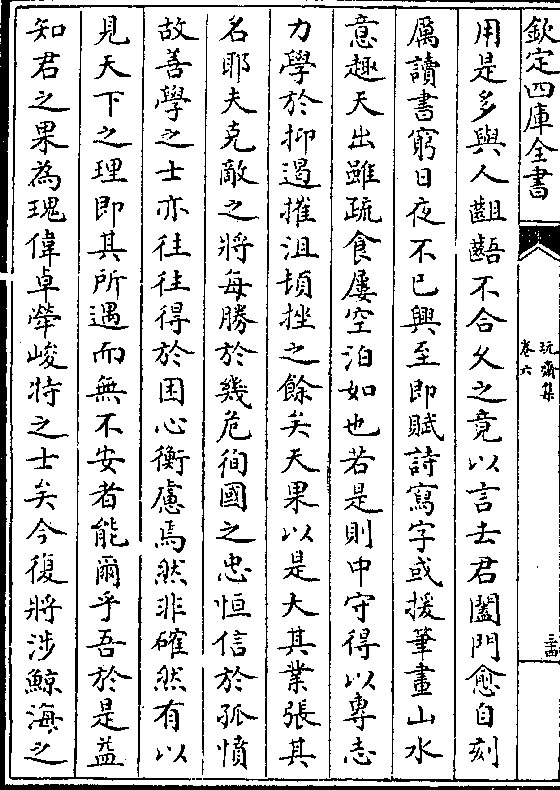 欽定四庫全書
玩齋集
卷六
三四
用是多與人齟齬不合久之竟以言去君闔門愈自刻
厲讀書窮日夜不已興至即賦詩寫字或援筆畫山水
意趣天出雖疏食屢空泊如也若是則中守得以專志
力學於抑遏摧沮頓挫之餘矣天果以是大其業張其
名耶夫克敵之將每勝於幾危徇國之忠恒信於孤憤
故善學之士亦往往得於困心衡慮焉然非確然有以
見天下之理即其所遇而無不安者能爾乎吾於是益
知君之果為瑰偉卓犖峻特之士矣今復將涉鯨海之